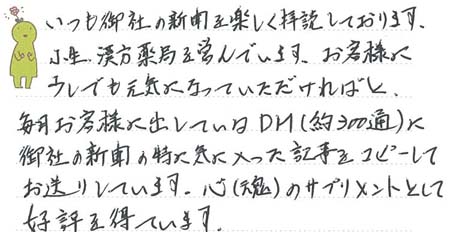 いつも御社の新聞を楽しく拝読しております。
小生、漢方薬局を営んでいます。お客様に
少しでも元気になっていただければと、
毎月お客様に出しているDM(約300通)に
御社の新聞の特に気に入った記事をコピーして
お送りしています。心(魂)のサプリメントとして
好評を得ています。